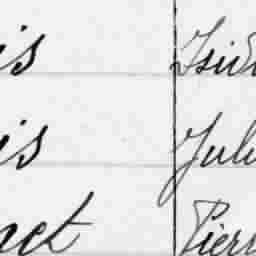 is Isid
is Jule
act Pierr